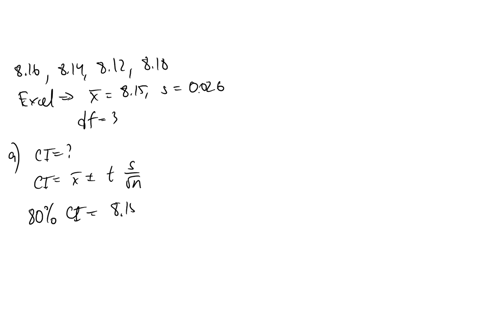 8.16, 8.14, 8.12, 8.18
Excel => x̄ = 8.15, s = 0.026
df = 3
a) CI = ?
CI = x̄ ± t s/√n
80% CI = 8.15